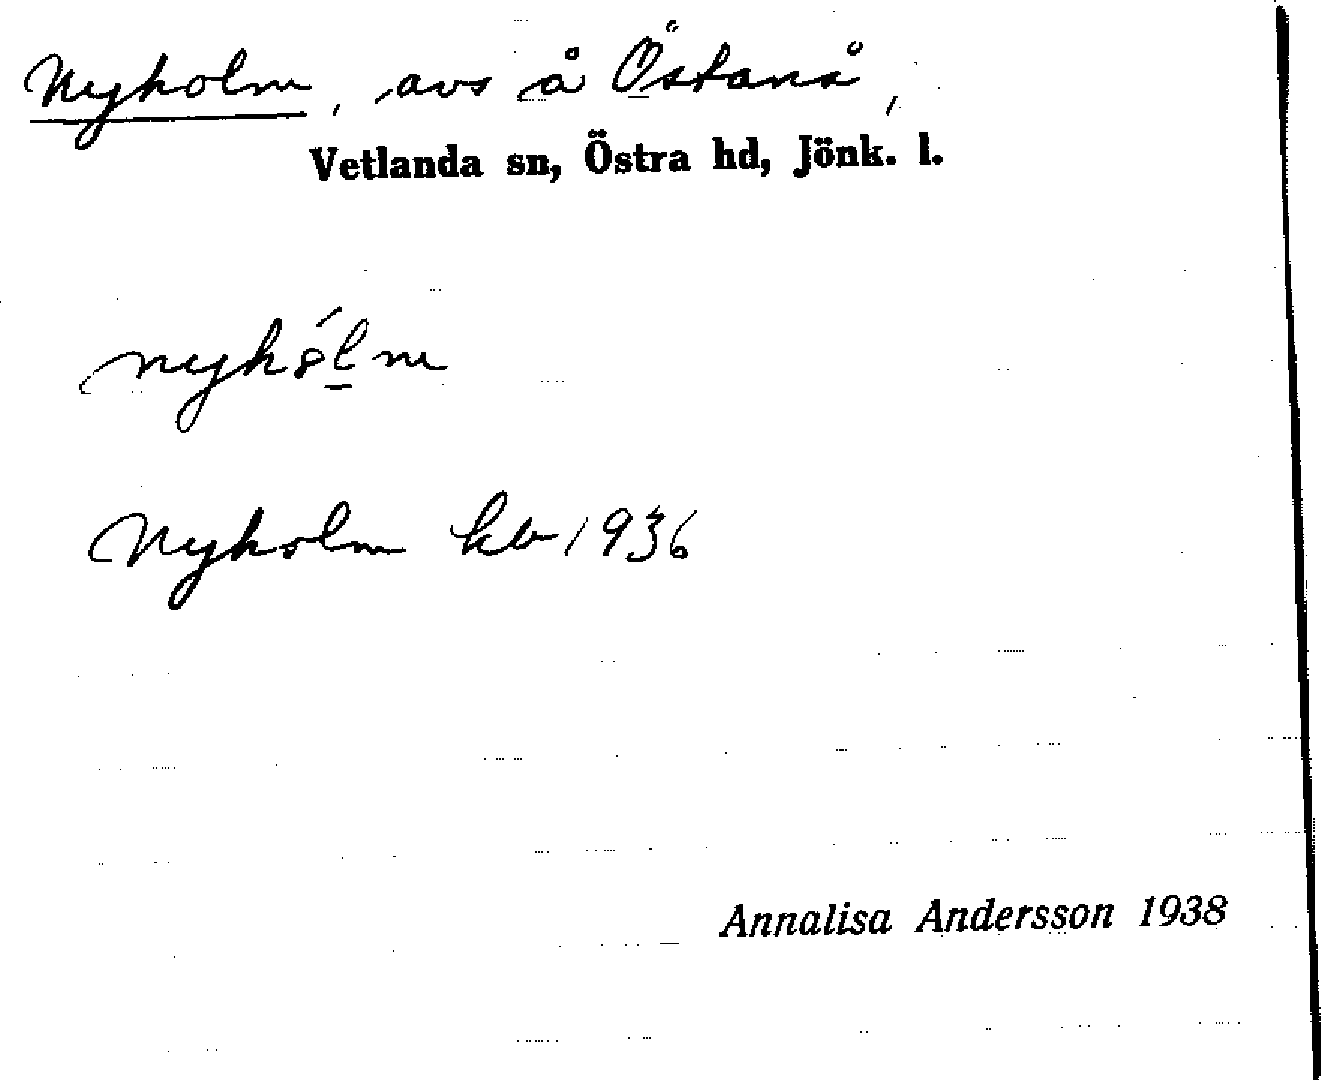 Nyholm, avs å Östanå,
Vetlanda sn, Östra hd, Jönk. l.
nyhólm
Nyholm kb 1936
Annalisa Andersson 1938